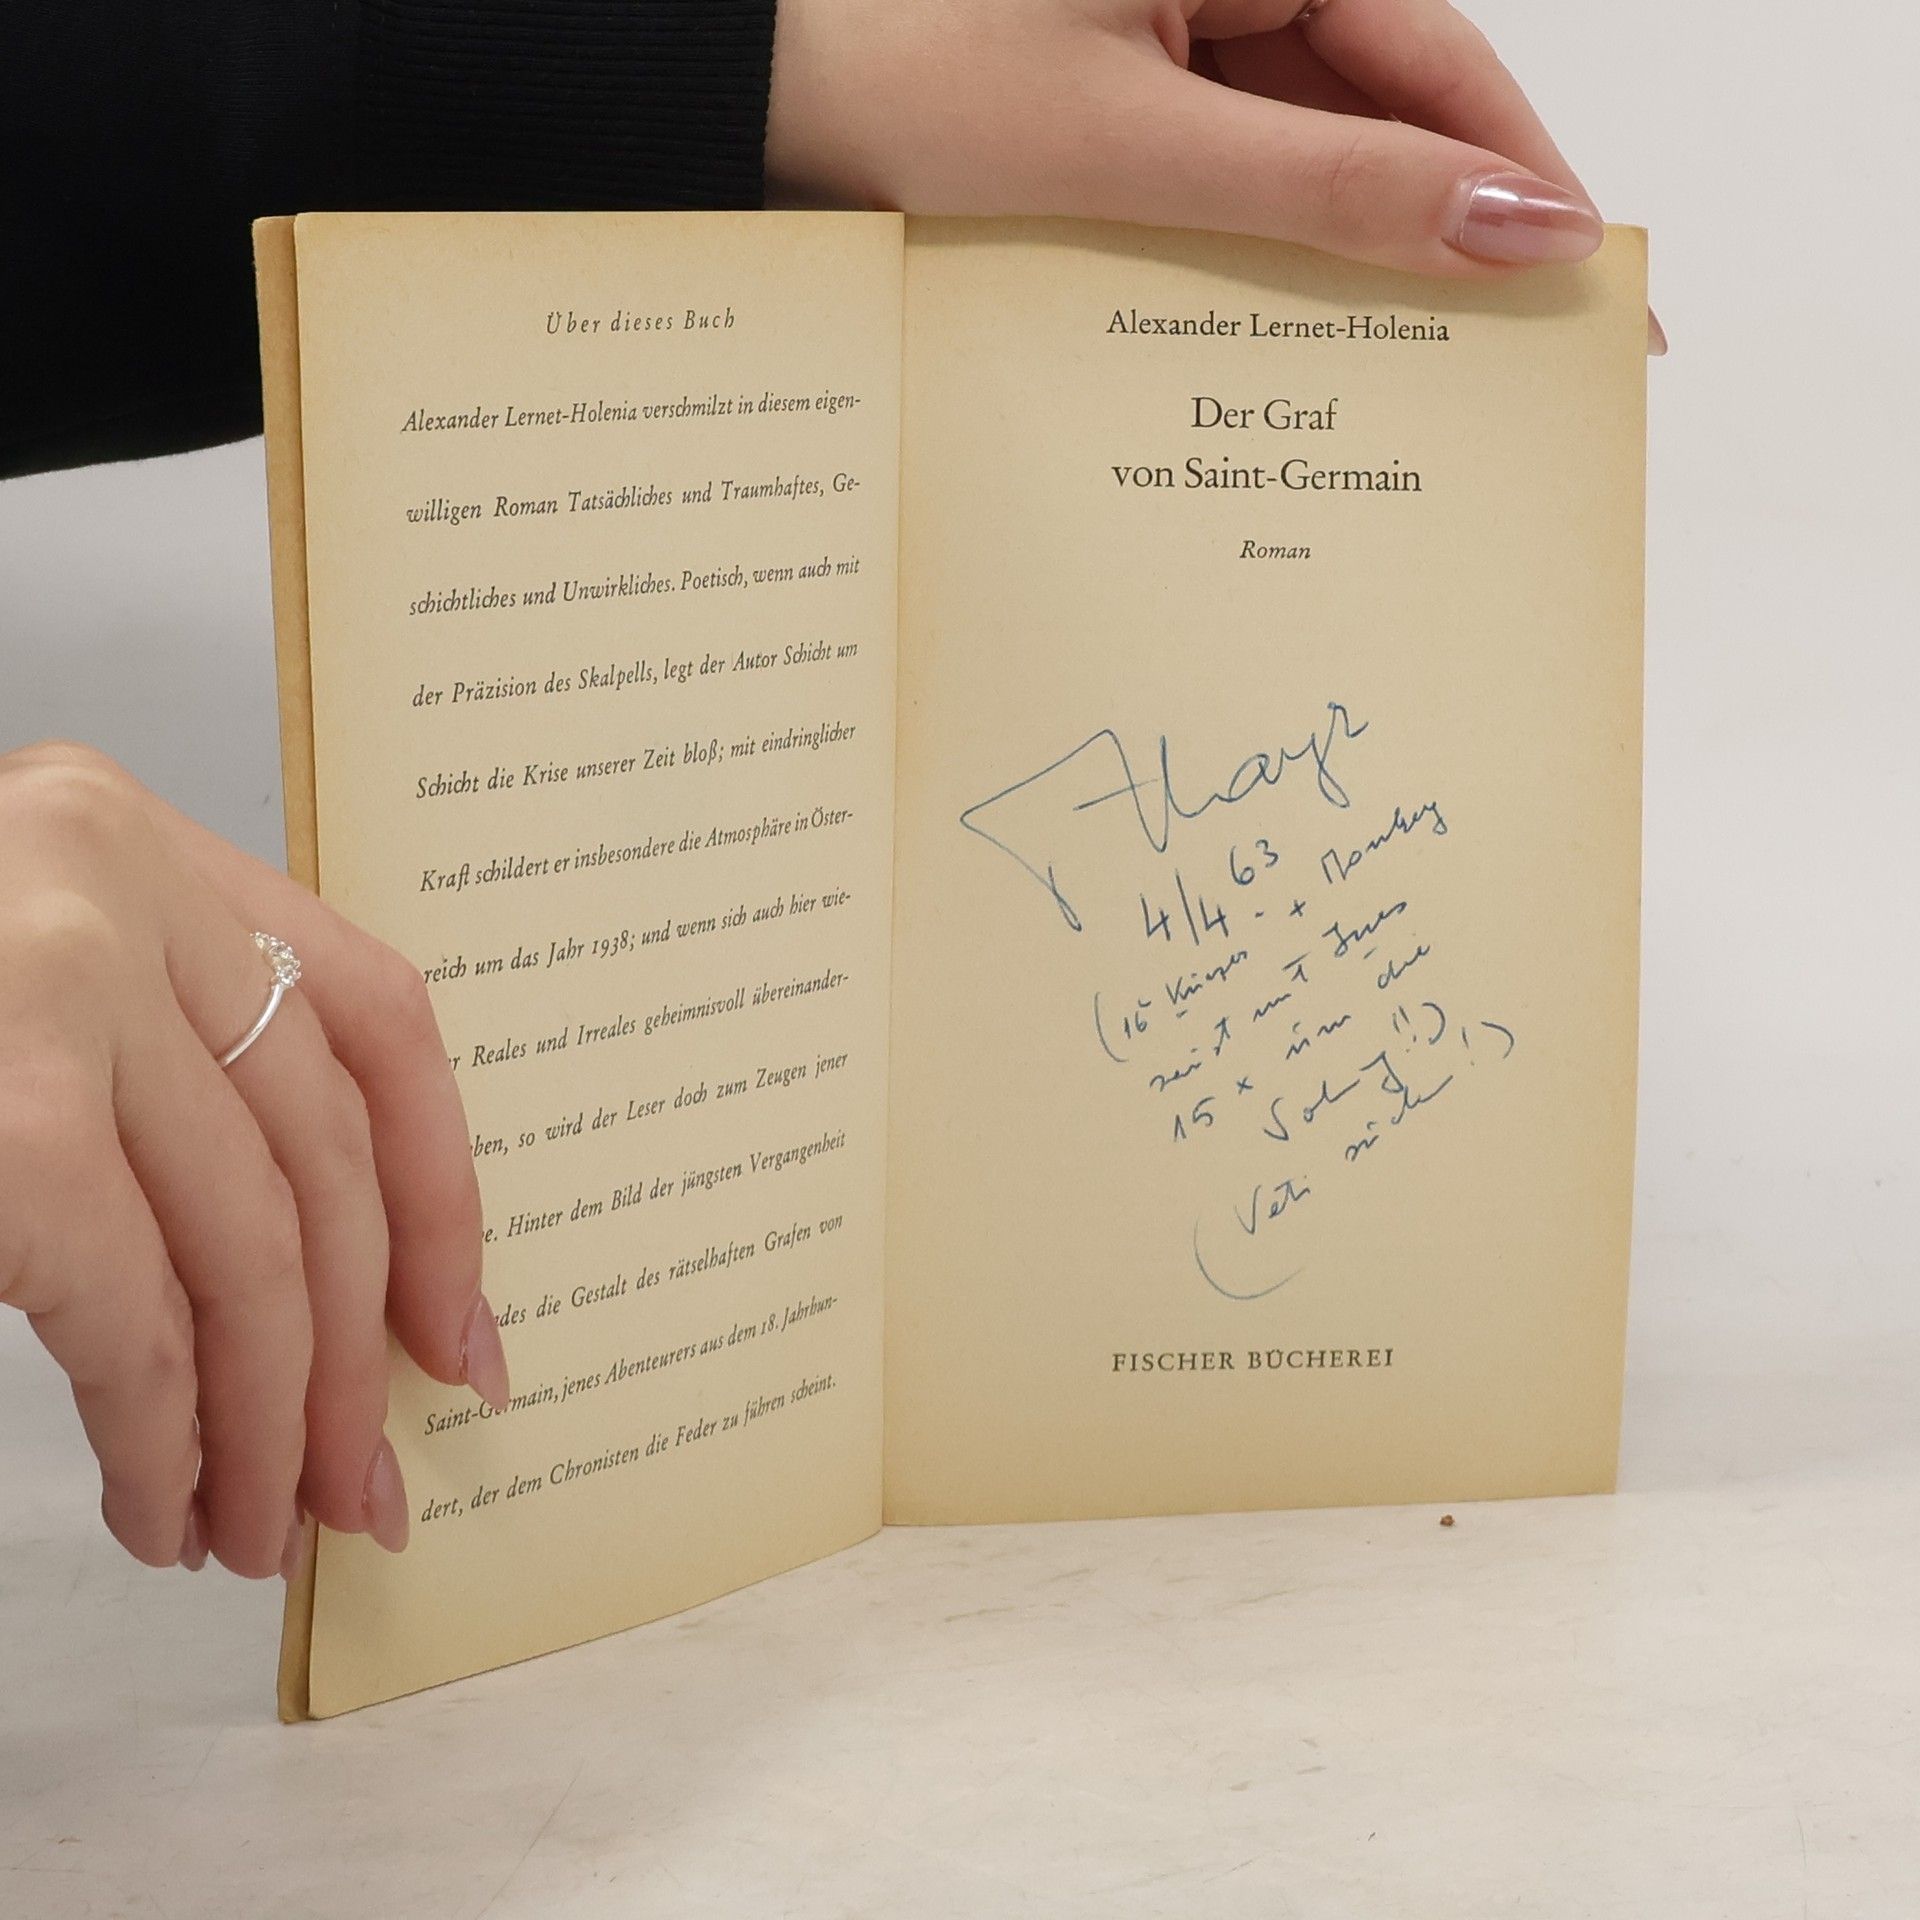 Über dieses Buch
Alexander Lernet-Holenia verschmilzt in diesem eigen-
willigen Roman Tatsächliches und Traumhaftes, Ge-
schichtliches und Unwirkliches. Poetisch, wenn auch mit
der Präzision des Skalpells, legt der Autor Schicht um
Schicht die Krise unserer Zeit bloß; mit eindringlicher
Kraft schildert er insbesondere die Atmosphäre in Öster-
reich um das Jahr 1938; und wenn sich auch hier wie-
Reales und Irreales geheimnisvoll übereinander-
so wird der Leser doch zum Zeugen jener
Hinter dem Bild der jüngsten Vergangenheit
die Gestalt des rätselhaften Grafen von
Saint-Germain, jenes Abenteurers aus dem 18. Jahrhun-
dert, der dem Chronisten die Feder zu führen scheint.
Alexander Lernet-Holenia
Der Graf
von Saint-Germain
Roman
4/4 63
15 x um die
FISCHER BÜCHEREI